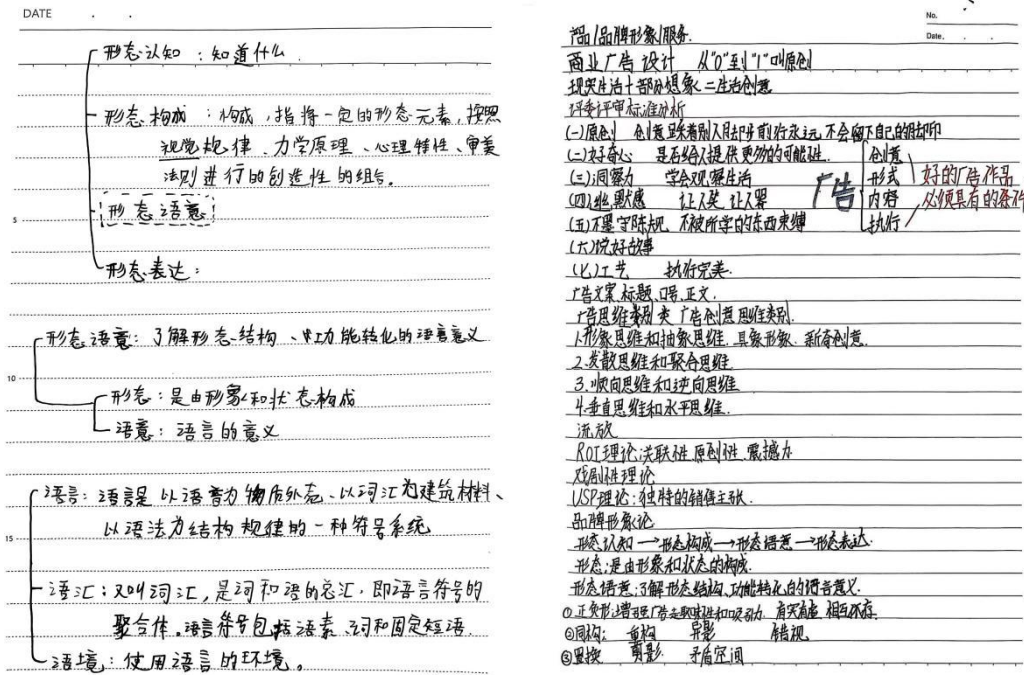 DATE
形态认知：知道什么
形态构成：构成，指将一定的形态元素，按照
视觉规律、力学原理、心理特性、审美
法则进行的创造性的组合。
5
形态语意
形态表达：
形态语意：了解形态结构、功能转化的语言意义
10
形态：是由形象和状态构成
语意：语言的意义
语言：语言是以语音为物质外壳、以词汇为建筑材料、
以语法为结构规律的一种符号系统
15
语汇：又叫词汇，是词和语的总汇，即语言符号的
聚合体。语言符号包括语素、词和固定短语.
语境：使用语言的环境。
No.
Date.
产品/品牌形象/服务.
商业广告设计 从"0"到"1"叫原创
现实生活+部分想象=生活创意
评委评审标准分析
(一)原创 创意踩着别人脚步前行永远不会留下自己的脚印
(二)好奇心 是否给人提供更多的可能性.
(三)洞察力 学会观察生活
(四)幽默感 让人笑 让人哭
(五)不墨守陈规 不被所学的东西束缚
广告
创意
形式
内容
执行
好的广告作品
必须具有的条件
(六)说好故事
(七)工艺 执行完美.
广告文案、标题、口号、正文.
广告思维类别 广告创意思维类别.
1.形象思维和抽象思维 具象形象. 新奇创意.
2.发散思维和聚合思维
3.顺向思维和逆向思维
4.垂直思维和水平思维.
流放
ROI理论:关联性 原创性 震撼力
戏剧性理论
USP理论:独特的销售主张.
品牌形象论
形态认知→形态构成→形态语意→形态表达.
形态:是由形象和状态的构成.
形态语意:了解形态结构、功能转化的语言意义.
①正负形:增强广告主题趣味性和吸引力. 有实有虚 相互依存.
②同构: 重构 异影 错视
③置换 剪影 矛盾空间